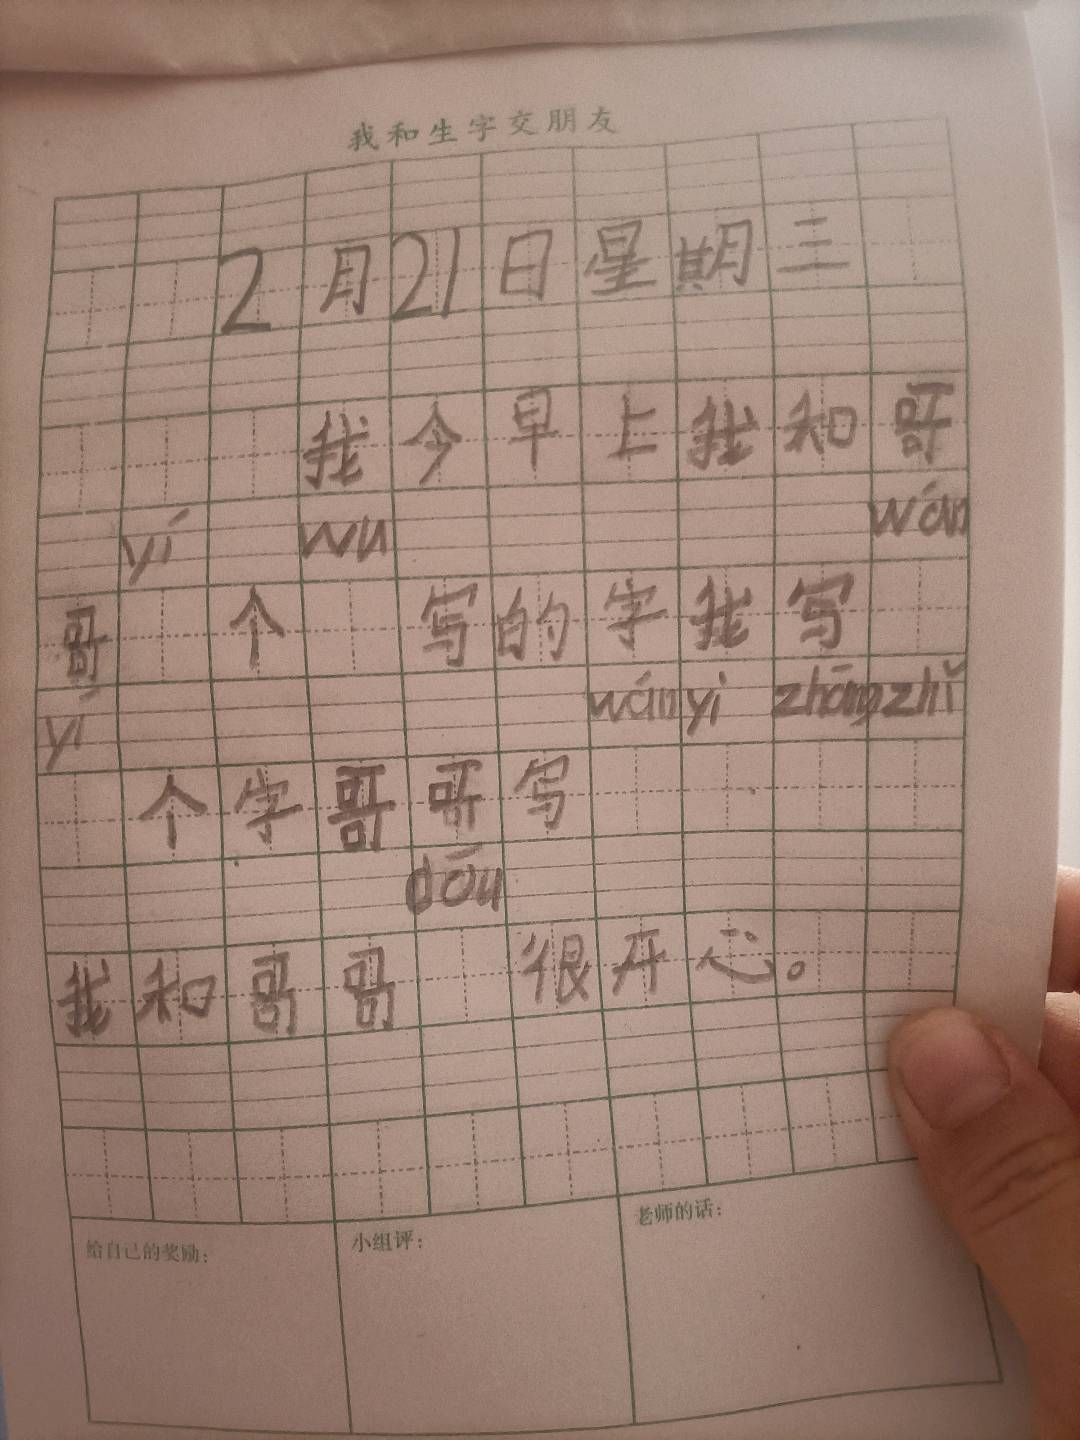 我和生字交朋友
2月21日星期三
我今早上我和哥
yí wu wán
哥 个 写的字我写
yí wán yì zhāng zhǐ
个字哥哥写
dōu
我和哥哥 很开心。
给自己的奖励：
小组评：
老师的话：